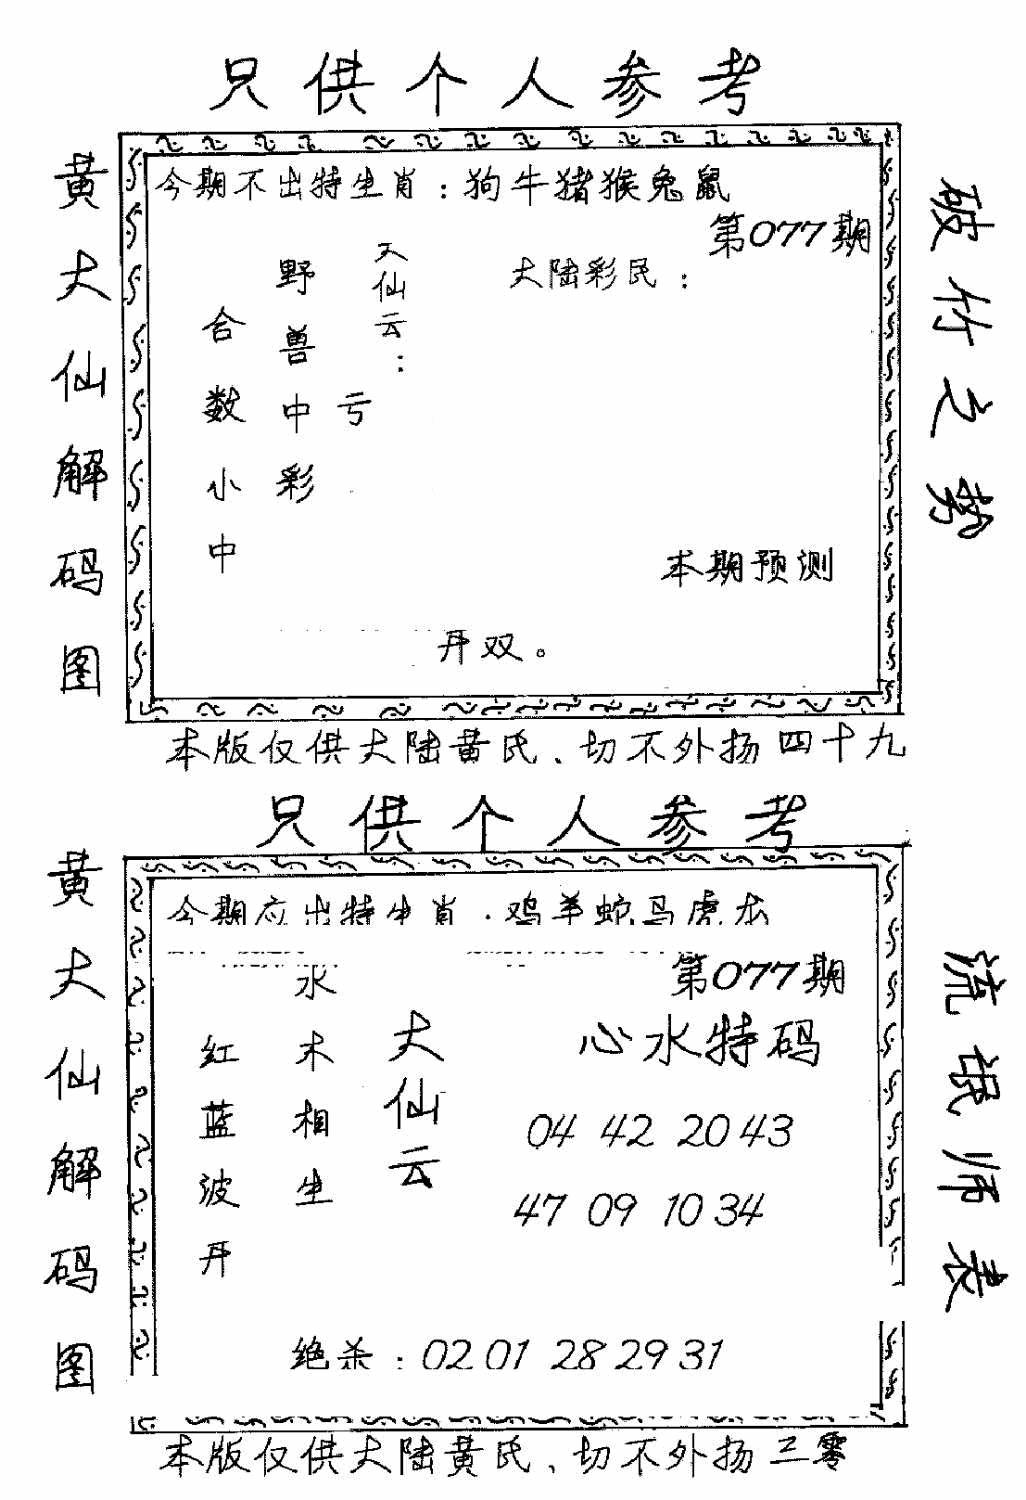 只供个人参考
黄大仙解码图
今期不出特生肖：狗牛猪猴兔鼠
第077期
大陆彩民：
大仙云：
亏
野兽中彩
合数小中
本期预测
开双。
破竹之势
本版仅供大陆黄氏、切不外扬四十九
只供个人参考
黄大仙解码图
今期应出特生肖·鸡羊蛇马虎龙
第077期
心水特码
大仙云
水木相生
红蓝波开
04 42 20 43
47 09 10 34
绝杀：02 01 28 29 31
流氓师表
本版仅供大陆黄氏、切不外扬三零